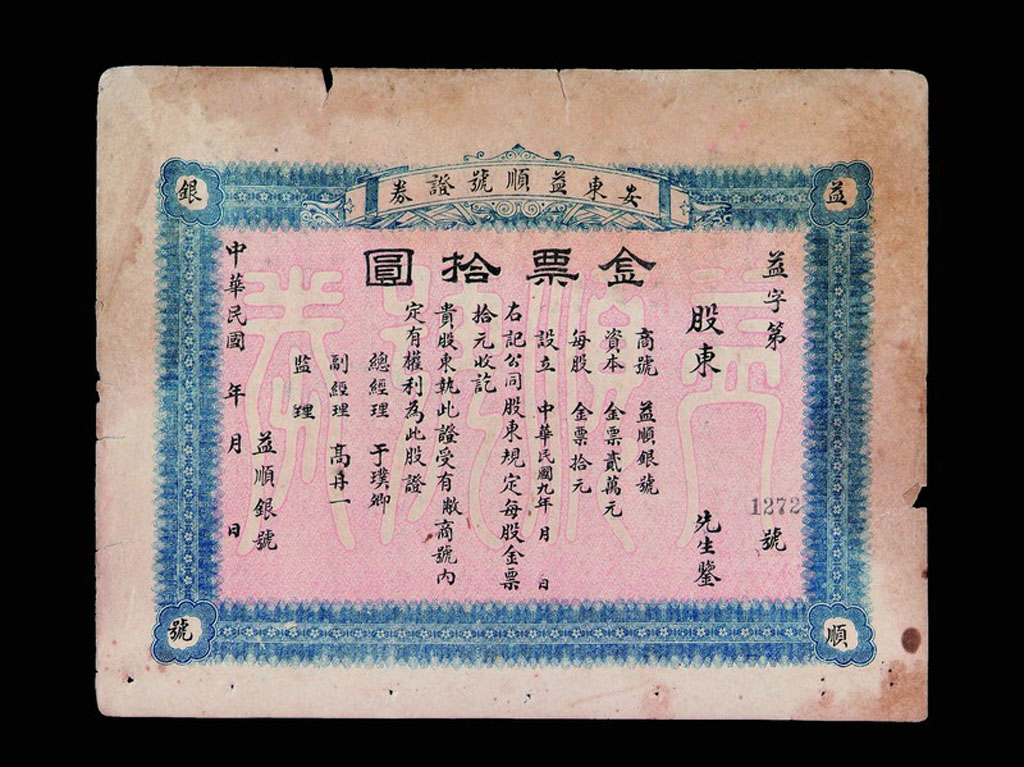 安東益順號證券
益
順
銀
號
金票拾圓
益字第1272號
股東 先生鑒
商號 益順銀號
資本 金票貳萬元
每股 金票拾元
設立 中華民國九年 月 日
右記公司股東規定每股金票
拾元收訖
貴股東執此證受有敝商號內
定有權利為此股證
總經理 于璞卿
副經理 高丹一
監理
益順銀號
中華民國 年 月 日